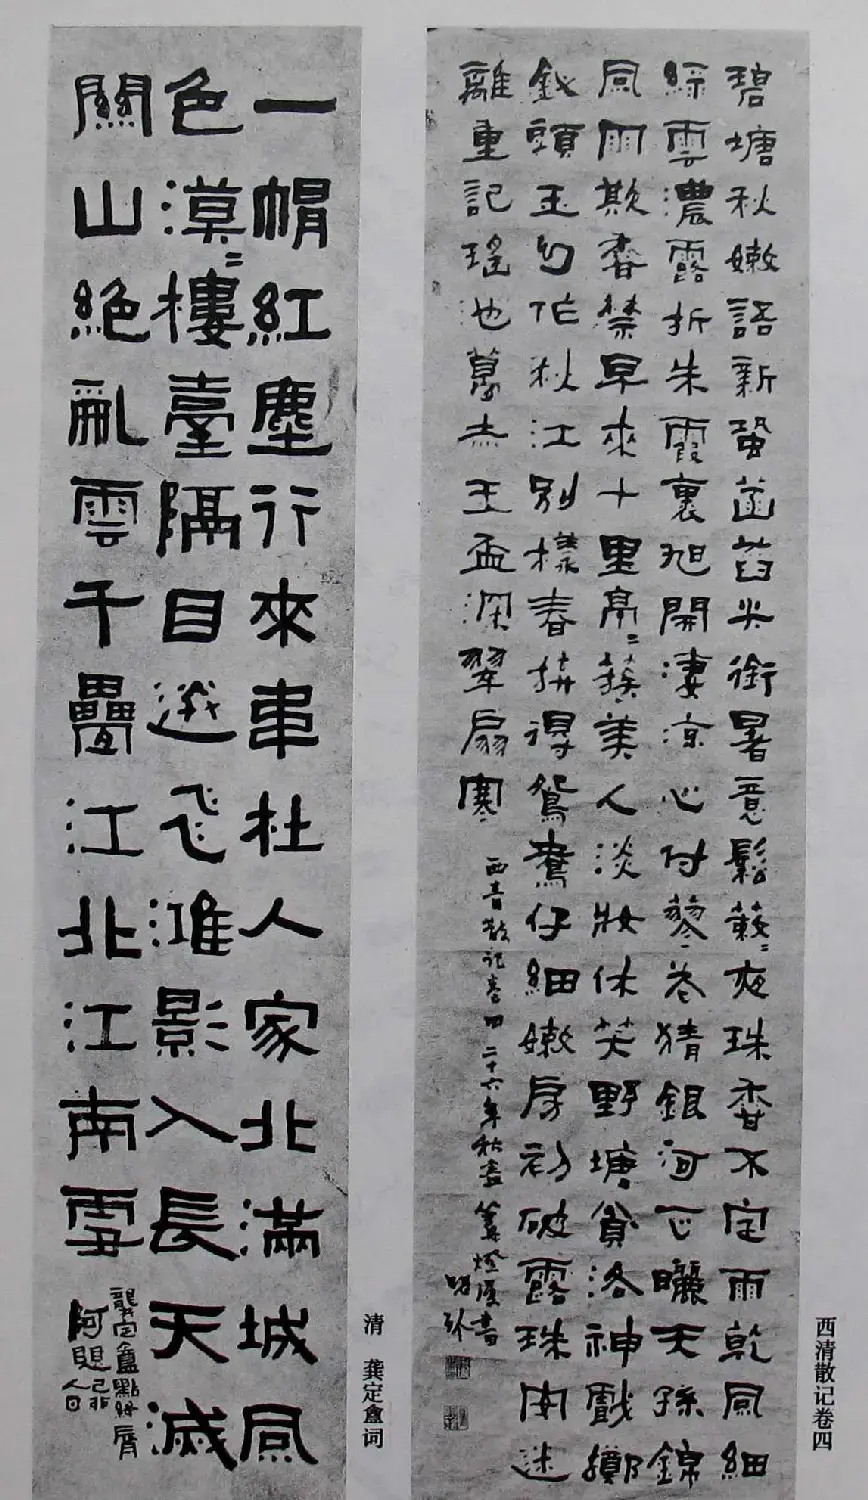 碧塘秋嫩語新蛩菡萏尖銜暑意鬆蔌〻夜珠香不定雨乾風細
綵雲濃露折朱霞裏旭開淒涼心付蓼〻猜銀河正曬天孫錦
風雨欺香禁早來十里亭〻蔟美人淡妝休笑野塘貧洛神戲擲
釵頭玉幻作秋江別樣春拚得鴛鴦仔細嫩房初破露珠圓迷
離重記瑤池萬古玉盃深翠扇寒
西青散記卷四 二十六年秋盡 篝燈漫書
西清散记卷四
一帽紅塵行來韋杜人家北滿城風
色漠〻樓臺隔目送飛鴻影入長天滅
關山絕亂雲千疊江北江南雪
龔定盦點絳脣
清 龚定盦词